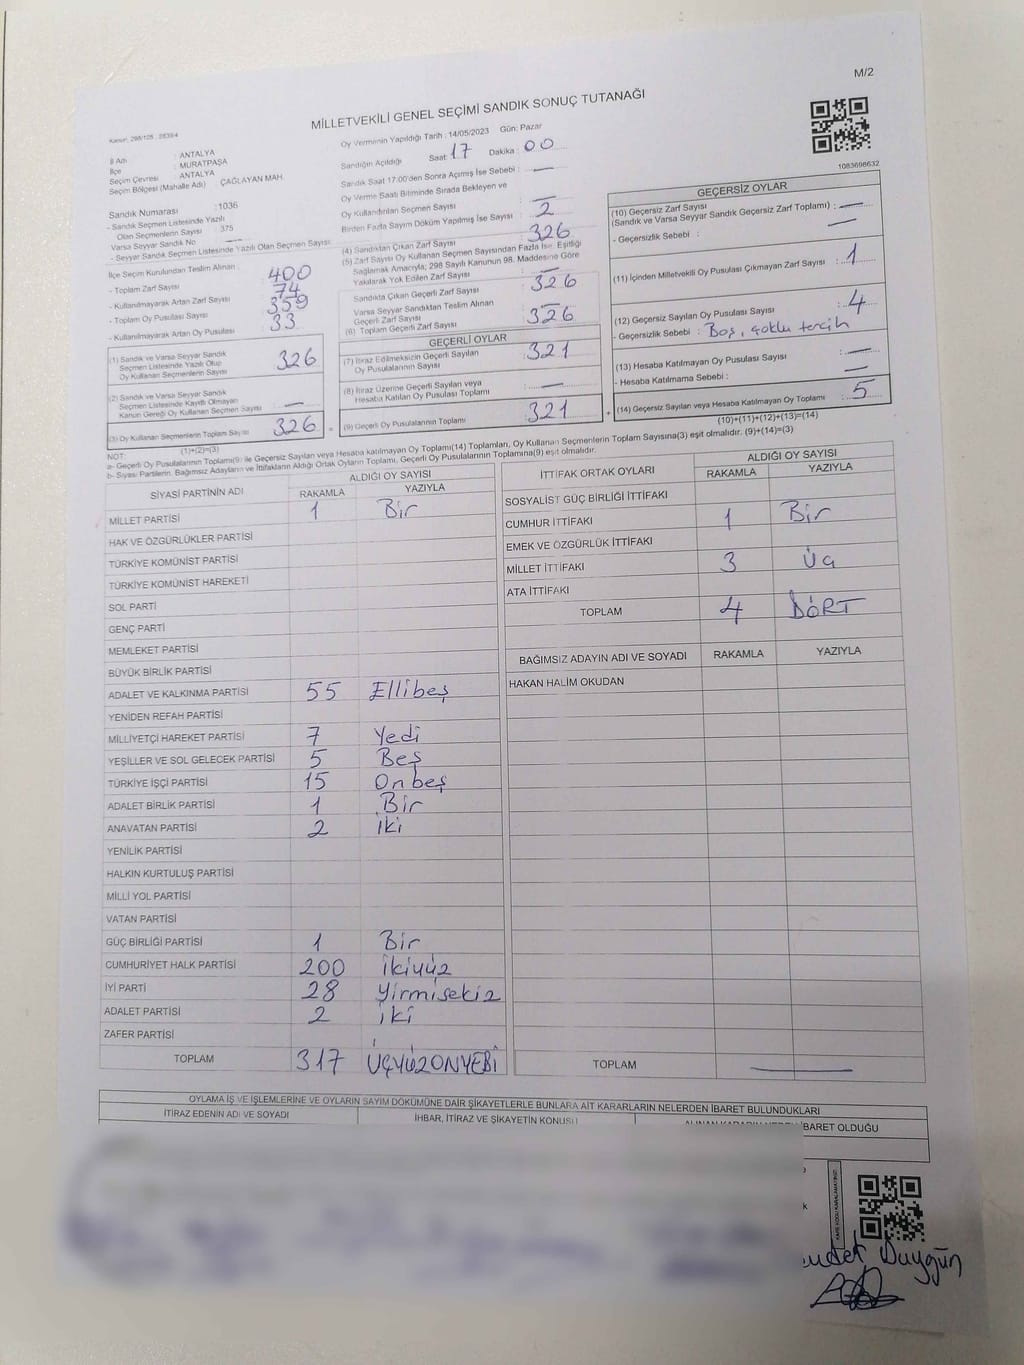 M/2
MİLLETVEKİLİ GENEL SEÇİMİ SANDIK SONUÇ TUTANAĞI
Kanun: 298/105 : 2839/4
İl Adı : ANTALYA
İlçe : MURATPAŞA
Seçim Çevresi : ANTALYA
Seçim Bölgesi (Mahalle Adı) : ÇAĞLAYAN MAH
Sandık Numarası : 1036
- Sandık Seçmen Listesinde Yazılı
Olan Seçmenlerin Sayısı : 375
Varsa Seyyar Sandık No —
- Seyyar Sandık Seçmen Listesinde Yazılı Olan Seçmen Sayısı:
İlçe Seçim Kurulundan Teslim Alınan :
- Toplam Zarf Sayısı : 400
- Kullanılmayarak Artan Zarf Sayısı : 74
- Toplam Oy Pusulası Sayısı : 359
- Kullanılmayarak Artan Oy Pusulası : 33
(1) Sandık ve Varsa Seyyar Sandık
Seçmen Listesinde Yazılı Olup
Oy Kullanan Seçmenlerin Sayısı : 326
(2) Sandık ve Varsa Seyyar Sandık
Seçmen Listesinde Kayıtlı Olmayan
Kanun Gereği Oy Kullanan Seçmen Sayısı : —
(3) Oy Kullanan Seçmenlerin Toplam Sayısı : 326
(1)+(2)=(3)
Oy Verme'nin Yapıldığı Tarih : 14/05/2023 Gün: Pazar
Sandığın Açıldığı Saat: 17 Dakika: 00
Sandık Saat 17:00'den Sonra Açımış İse Sebebi : —
Oy Verme Saati Bitiminde Sırada Bekleyen ve
Oy Kullandırılan Seçmen Sayısı : —
Birden Fazla Sayım Döküm Yapılmış İse Sayısı : 2
(4) Sandıktan Çıkan Zarf Sayısı : 326
(5) Zarf Sayısı Oy Kullanan Seçmen Sayısından Fazla İse, Eşitliği
Sağlamak Amacıyla; 298 Sayılı Kanunun 98. Maddesine Göre
Yakılarak Yok Edilen Zarf Sayısı : —
Sandıkta Çıkan Geçerli Zarf Sayısı : 326
Varsa Seyyar Sandıktan Teslim Alınan
Geçerli Zarf Sayısı : —
(6) Toplam Geçerli Zarf Sayısı : 326
GEÇERLİ OYLAR
(7) İtiraz Edilmeksizin Geçerli Sayılan
Oy Pusulalarının Sayısı : 321
(8) İtiraz Üzerine Geçerli Sayılan veya
Hesaba Katılan Oy Pusulası Toplamı : —
(9) Geçerli Oy Pusulalarının Toplamı : 321
1083698632
GEÇERSİZ OYLAR
(10) Geçersiz Zarf Sayısı
(Sandık ve Varsa Seyyar Sandık Geçersiz Zarf Toplamı) : —
- Geçersizlik Sebebi : —
(11) İçinden Milletvekili Oy Pusulası Çıkmayan Zarf Sayısı : 1
(12) Geçersiz Sayılan Oy Pusulası Sayısı : 4
- Geçersizlik Sebebi : Boş, çoklu tercih
(13) Hesaba Katılmayan Oy Pusulası Sayısı : —
- Hesaba Katılmama Sebebi : —
(14) Geçersiz Sayılan veya Hesaba Katılmayan Oy Toplamı : 5
(10)+(11)+(12)+(13)=(14)
NOT:
a- Geçerli Oy Pusulalarının Toplamı(9) ile Geçersiz Sayılan veya Hesaba katılmayan Oy Toplamı(14) Toplamları, Oy Kullanan Seçmenlerin Toplam Sayısına(3) eşit olmalıdır. (9)+(14)=(3)
b- Siyasi Partilerin, Bağımsız Adayların ve İttifakların Aldığı Ortak Oyların Toplamı, Geçerli Oy Pusulalarının Toplamına(9) eşit olmalıdır.
SİYASİ PARTİNİN ADI ALDIĞI OY SAYISI
RAKAMLA YAZIYLA
MİLLET PARTİSİ 1 Bir
HAK VE ÖZGÜRLÜKLER PARTİSİ
TÜRKİYE KOMÜNİST PARTİSİ
TÜRKİYE KOMÜNİST HAREKETİ
SOL PARTİ
GENÇ PARTİ
MEMLEKET PARTİSİ
BÜYÜK BİRLİK PARTİSİ
ADALET VE KALKINMA PARTİSİ 55 Ellibeş
YENİDEN REFAH PARTİSİ
MİLLİYETÇİ HAREKET PARTİSİ 7 Yedi
YEŞİLLER VE SOL GELECEK PARTİSİ 5 Beş
TÜRKİYE İŞÇİ PARTİSİ 15 Onbeş
ADALET BİRLİK PARTİSİ 1 Bir
ANAVATAN PARTİSİ 2 iki
YENİLİK PARTİSİ
HALKIN KURTULUŞ PARTİSİ
MİLLİ YOL PARTİSİ
VATAN PARTİSİ
GÜÇ BİRLİĞİ PARTİSİ 1 Bir
CUMHURİYET HALK PARTİSİ 200 ikiyüz
İYİ PARTİ 28 Yirmisekiz
ADALET PARTİSİ 2 iki
ZAFER PARTİSİ
TOPLAM 317 ÜÇYÜZONYEDİ
İTTİFAK ORTAK OYLARI ALDIĞI OY SAYISI
RAKAMLA YAZIYLA
SOSYALİST GÜÇ BİRLİĞİ İTTİFAKI
CUMHUR İTTİFAKI 1 Bir
EMEK VE ÖZGÜRLÜK İTTİFAKI
MİLLET İTTİFAKI 3 Üç
ATA İTTİFAKI
TOPLAM 4 DÖRT
BAĞIMSIZ ADAYIN ADI VE SOYADI RAKAMLA YAZIYLA
HAKAN HALİM OKUDAN
TOPLAM —
OYLAMA İŞ VE İŞLEMLERİNE VE OYLARIN SAYIM DÖKÜMÜNE DAİR ŞİKAYETLERLE BUNLARA AİT KARARLARIN NELERDEN İBARET BULUNDUKLARI
İTİRAZ EDENİN ADI VE SOYADI İHBAR, İTİRAZ VE ŞİKAYETİN KONUSU İBARET OLDUĞU
Duygun